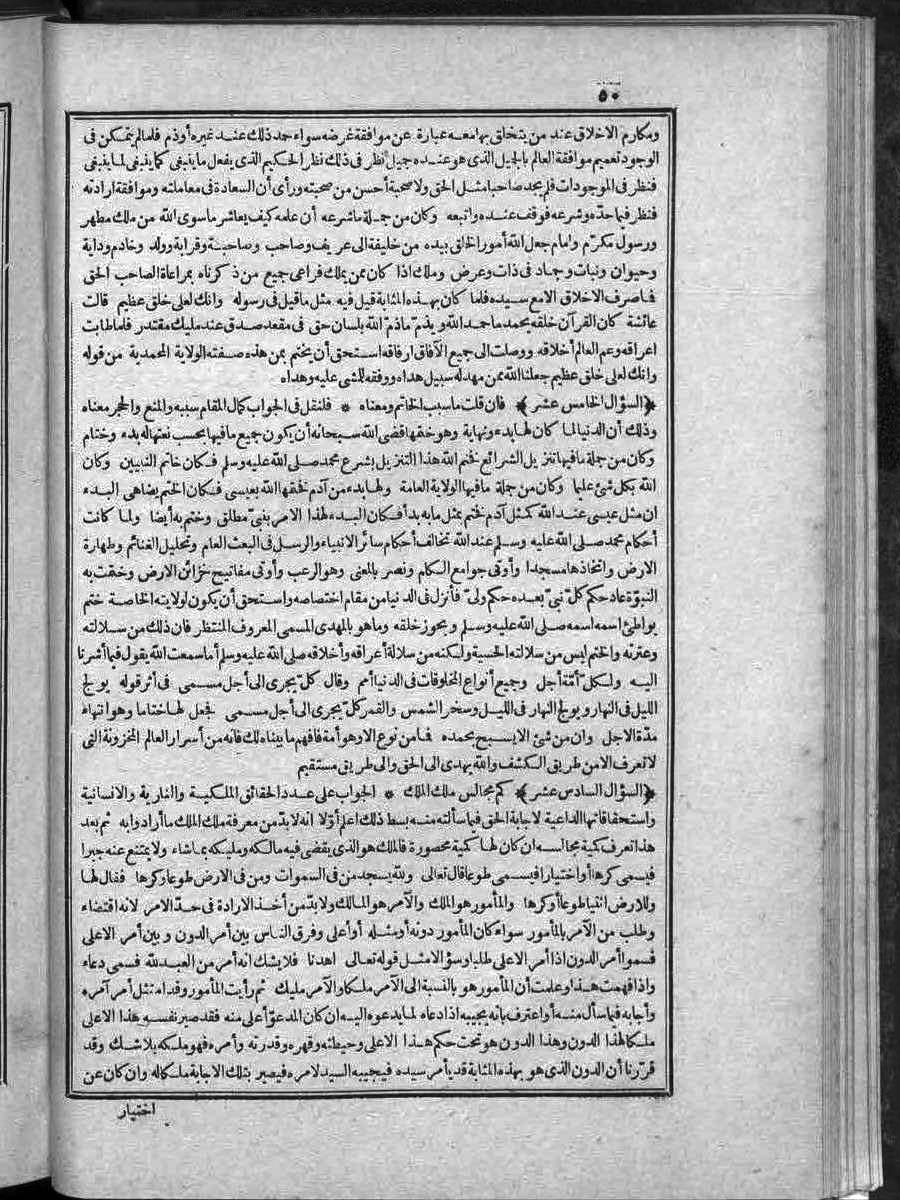 ٥٠
ومكارم الاخلاق عند من يتخلق بها معه عبارة عن موافقة غرضه سواء حمد ذلك عند غيره أو ذم فلما لم يتمكن فى
الوجود تعميم موافقة العالم بالجميل الذى هو عنده جميل نظر فى ذلك نظر الحكيم الذى يفعل ما ينبغى كما ينبغى لما ينبغى
فنظر فى الموجودات فلم يجد صاحبا مثل الحق ولا صحبة أحسن من صحبته ورأى أن السعادة فى معاملته وموافقة ارادته
فنظر فيما حده وشرعه فوقف عنده واتبعه وكان من جملة ما شرعه أن علمه كيف يعاشر ما سوى الله من ملك مطهر
ورسول مكرّم وامام جعل الله أمور الخلق بيده من خليفة الى عريف وصاحب وصاحبة وقرابة وولد وخادم ودابة
وحيوان ونبات وجماد فى ذات وعرض وملك اذا كان ممن يملك فراعى جميع من ذكرناه بمراعاة الصاحب الحق
فما صرف الاخلاق الا مع سيده فلما كان بهذه المثابة قيل فيه مثل ما قيل فى رسوله وانك لعلى خلق عظيم قالت
عائشة كان القرآن خلقه يحمد ما حمد الله ويذمّ ما ذمّ الله بلسان حق فى مقعد صدق عند مليك مقتدر فلما طابت
اعراقه وعم العالم أخلاقه ووصلت الى جميع الآفاق ارفاقه استحق أن يختم بمن هذه صفته الولاية المحمدية من قوله
وانك لعلى خلق عظيم جعلنا الله ممن مهد له سبيل هداه ووفقه للمشى عليه وهداه
﴿السؤال الخامس عشر﴾ فان قلت ما سبب الخاتم ومعناه * فلنقل فى الجواب كمال المقام سببه والمنع والحجر معناه
وذلك أن الدنيا لما كان لها بدء ونهاية وهو ختمها قضى الله سبحانه أن يكون جميع ما فيها بحسب نعتها له بدء وختام
وكان من جملة ما فيها تنزيل الشرائع فختم الله هذا التنزيل بشرع محمد صلى الله عليه وسلم فكان خاتم النبيين وكان
الله بكل شئ عليما وكان من جملة ما فيها الولاية العامة ولها بدء من آدم فختمها الله بعيسى فكان الختم يضاهى البدء
ان مثل عيسى عند الله كمثل آدم فختم بمثل ما به بدأ فكان البدء لهذا الامر بنبىّ مطلق وختم به أيضا ولما كانت
أحكام محمد صلى الله عليه وسلم عند الله تخالف أحكام سائر الانبياء والرسل فى البعث العام وتحليل الغنائم وطهارة
الارض واتخاذها مسجدا وأوتى جوامع الكلم ونصر بالمعنى وهو الرعب وأوتى مفاتيح خزائن الارض وختمت به
النبوّة عاد حكم كلّ نبىّ بعده حكم ولىّ فأنزل فى الدنيا من مقام اختصاصه واستحق أن يكون لولايته الخاصة ختم
يواطئ اسمه اسمه صلى الله عليه وسلم ويحوز خلقه وما هو بالمهدى المسمى المعروف المنتظر فان ذلك من سلالته
وعترته والختم ليس من سلالته الحسية ولكنه من سلالة أعراقه وأخلاقه صلى الله عليه وسلم أما سمعت الله يقول فيما أشرنا
اليه ولكلّ أمّة أجل وجميع أنواع المخلوقات فى الدنيا أمم وقال كلّ يجرى الى أجل مسمى فى أثر قوله يولج
الليل فى النهار ويولج النهار فى الليل وسخر الشمس والقمر كلّ يجرى الى أجل مسمى فجعل لها ختاما وهو انتهاء
مدّة الاجل وان من شئ الا يسبح بحمده فما من نوع الا وهو أمة فافهم ما بيناه لك فانه من أسرار العالم المخزونة التى
لا تعرف الا من طريق الكشف والله يهدى الى الحق والى طريق مستقيم
﴿السؤال السادس عشر﴾ كم مجالس ملك الملك * الجواب على عدد الحقائق الملكية والنارية والانسانية
واستحقاقاتها الداعية لاجابة الحق فيما سألته منه بسط ذلك اعلم أوّلا انه لا بدّ من معرفة ملك الملك ما أرادوا به ثم بعد
هذا تعرف كمية مجالسه ان كان لها كمية محصورة فالملك هو الذى يقضى فيه مالكه ومليكه بما شاء ولا يمتنع عنه جبرا
فيسمى كرها أو اختيارا فيسمى طوعا قال تعالى ولله يسجد من فى السموات ومن فى الارض طوعا وكرها فقال لها
وللارض ائتيا طوعا أو كرها والمأمور هو الملك والآمر هو المالك ولا بدّ من أخذ الارادة فى حدّ الامر لانه اقتضاء
وطلب من الآمر بالمأمور سواء كان المأمور دونه أو مثله أو أعلى وفرق الناس بين أمر الدون وبين أمر الاعلى
فسموا أمر الدون اذا أمر الاعلى طلبا وسؤالا مثل قوله تعالى اهدنا فلا يشك انه أمر من العبد لله فسمى دعاء
واذا فهمت هذا وعلمت أن المأمور هو بالنسبة الى الآمر ملكا والآمر مليك ثم رأيت المأمور وقد امتثل أمر آمره
وأجابه فيما سأل منه أو اعترف بانه يجيبه اذا دعاه لما يدعوه اليه ان كان المدعوّ أعلى منه فقد صير نفسه هذا الاعلى
ملكا لهذا الدون وهذا الدون هو تحت حكم هذا الاعلى وحيطته وقهره وقدرته وأمره فهو ملكه بلا شك وقد
قرّرنا أن الدون الذى هو بهذه المثابة قد يأمر سيده فيجيبه السيد لامره فيصير بتلك الاجابة ملكا له وان كان عن
اختيار